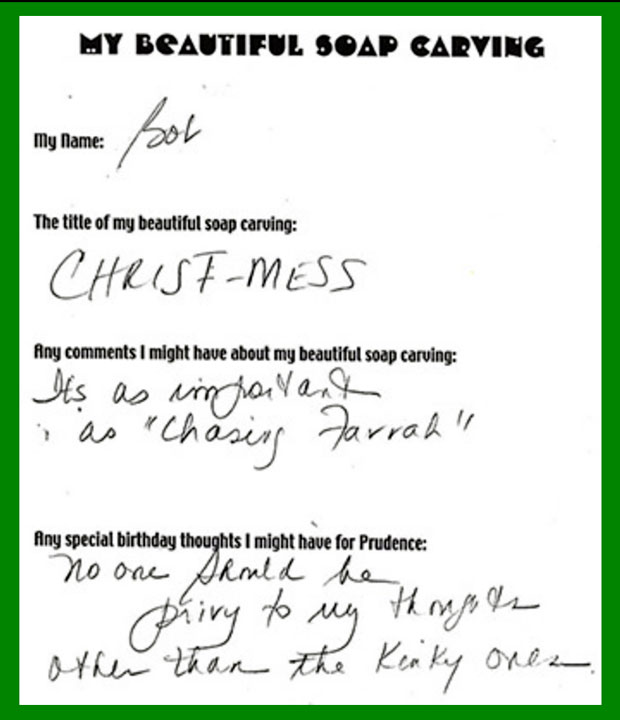 MY BEAUTIFUL SOAP CARVING
My Name: Bob
The title of my beautiful soap carving:
CHRIST-MESS
Any comments I might have about my beautiful soap carving:
Its as important
as "Chasing Farrah"
Any special birthday thoughts I might have for Prudence:
No one should be
privy to my thoughts
other than the Kinky ones.